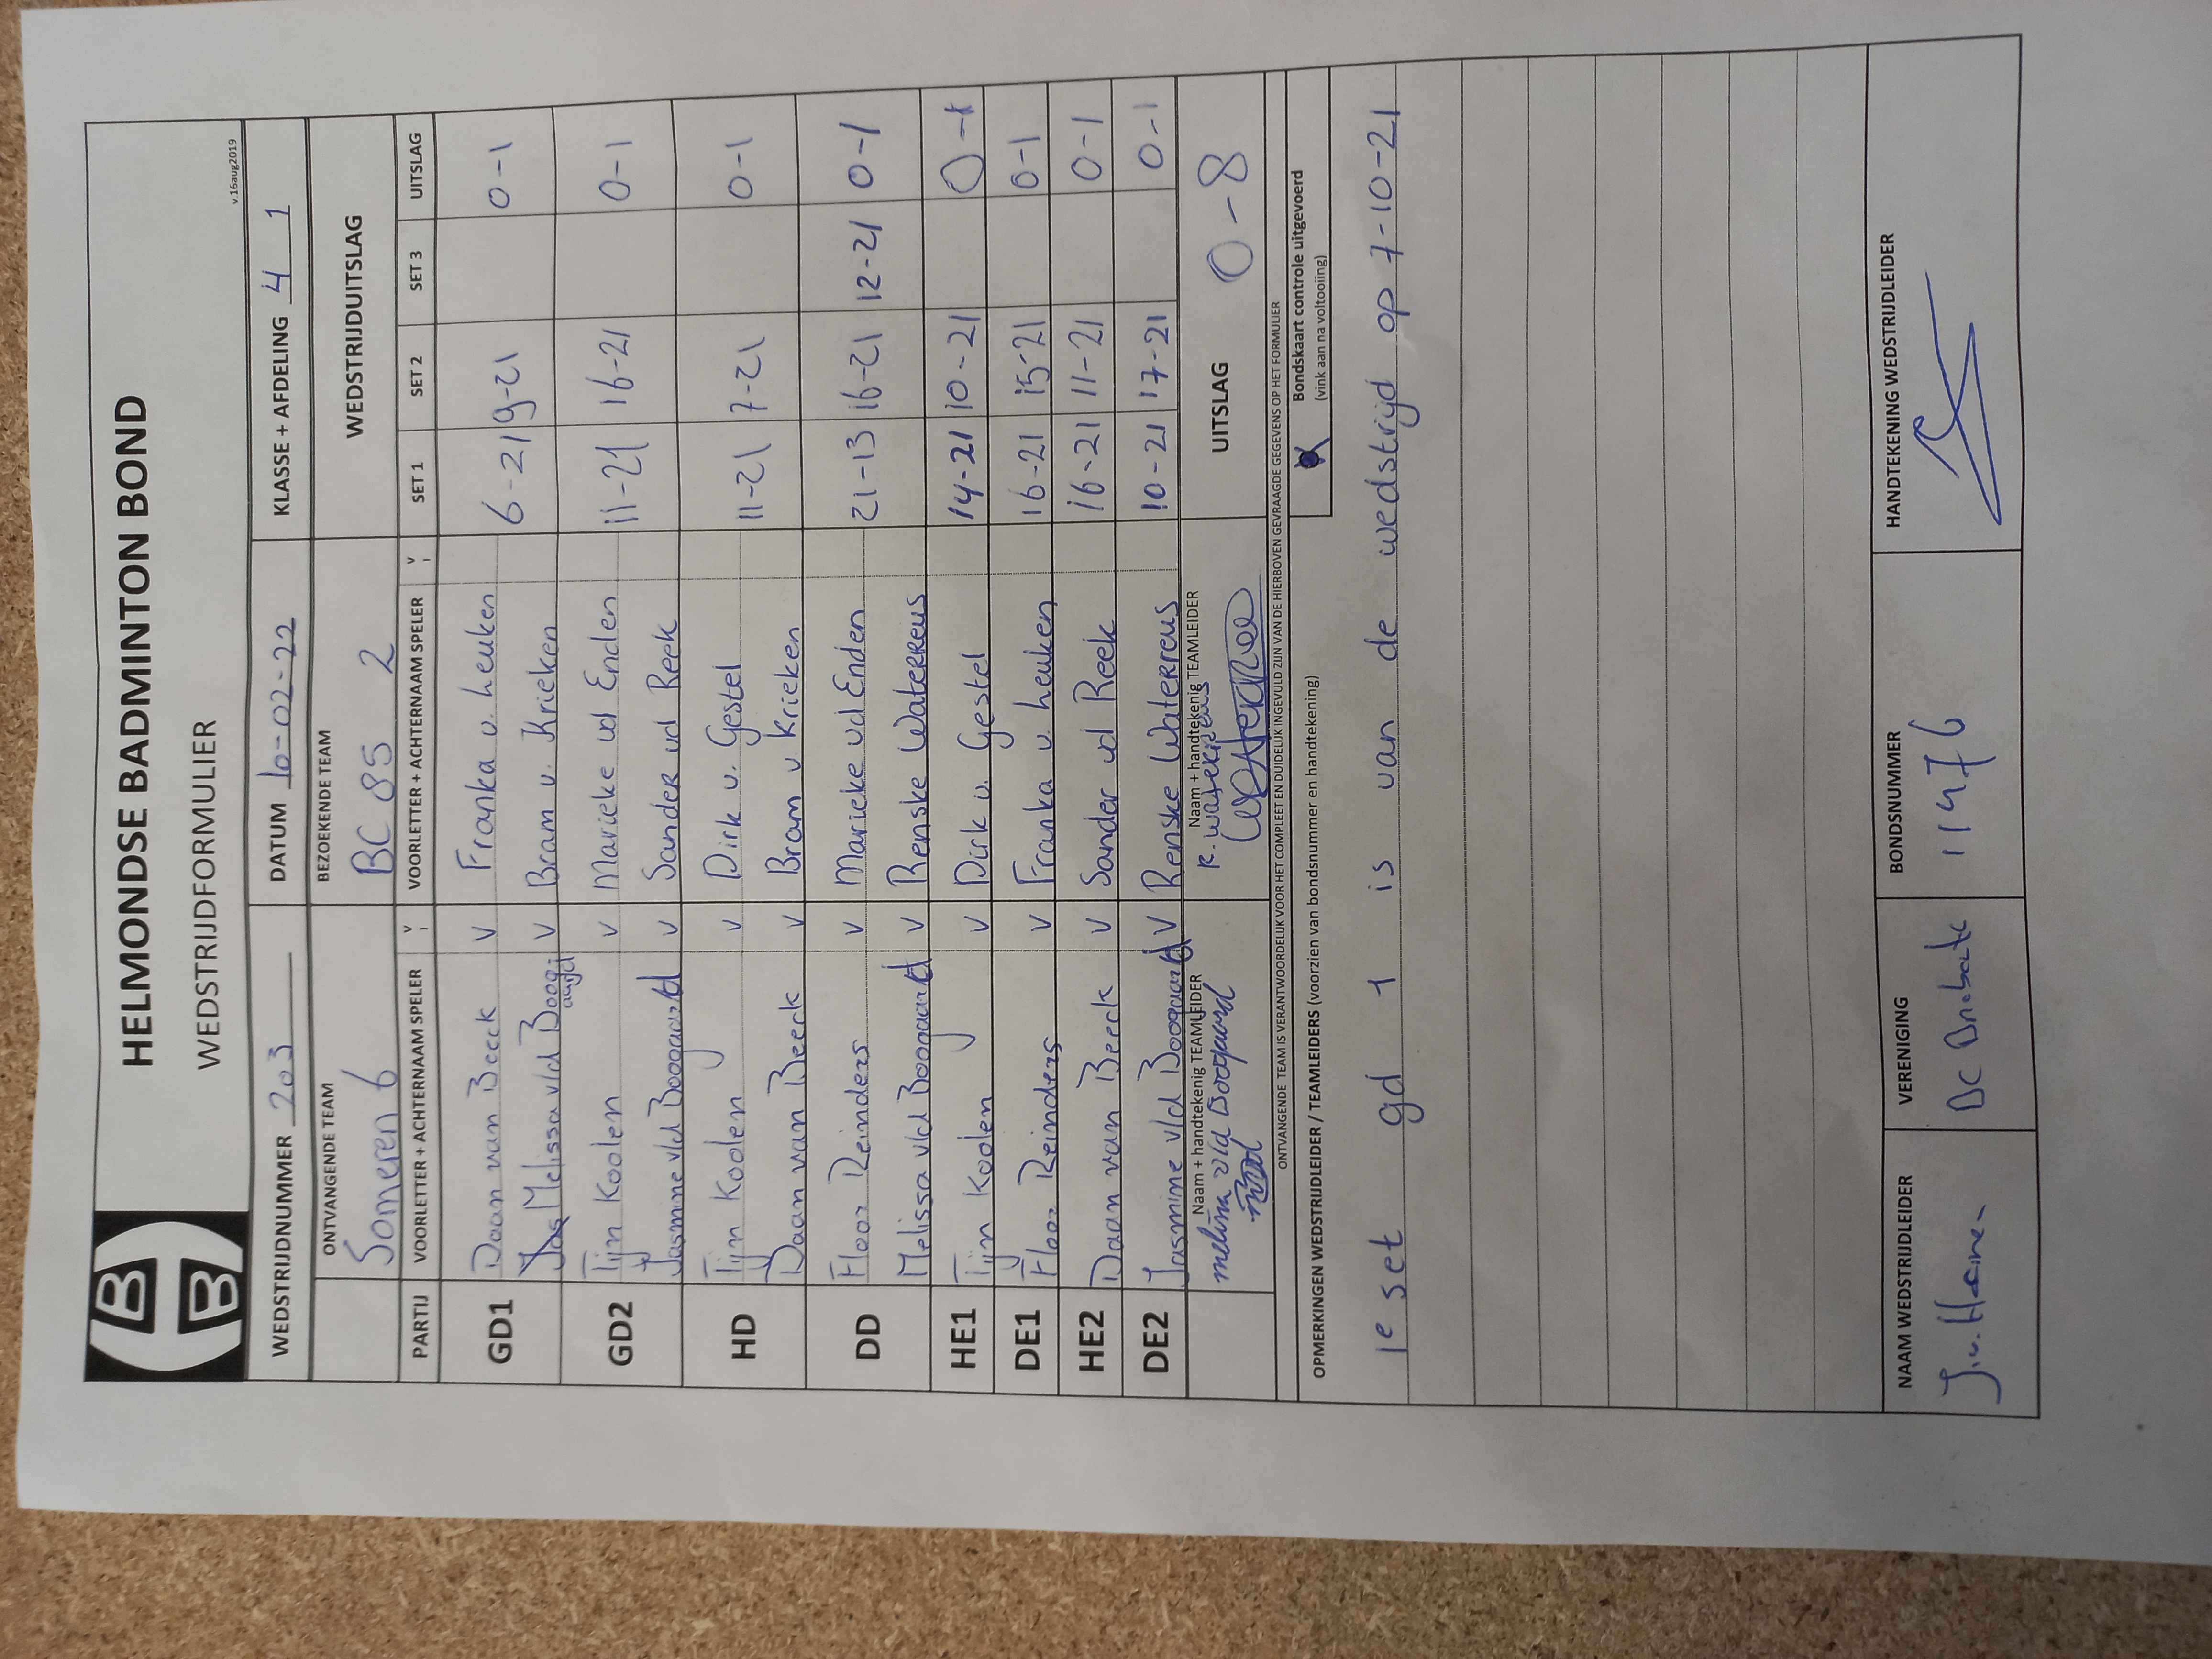 HELMONDSE BADMINTON BOND
WEDSTRIJDFORMULIER
v.16aug2019
WEDSTRIJDNUMMER 203 DATUM 10-02-22 KLASSE + AFDELING 4 1
ONTVANGENDE TEAM BEZOEKENDE TEAM WEDSTRIJDUITSLAG
Someren 6 BC 85 2
PARTIJ VOORLETTER + ACHTERNAAM SPELER V VOORLETTER + ACHTERNAAM SPELER V SET 1 SET 2 SET 3 UITSLAG
GD1 Daan van Beeck V Franka v. heuken 6-21 9-21 0-1
Melissa v/d Boogaard V Bram v. Krieken
GD2 Tijn Koolen V Marieke vd Enden 11-21 16-21 0-1
Jasmine v/d Boogaard V Sander vd Reek
HD Tijn Koolen V Dirk v. Gestel 11-21 7-21 0-1
Daan van Beeck V Bram v Krieken
DD Floor Reinders V Marieke vd Enden 21-13 16-21 12-21 0-1
Melissa v/d Boogaard V Renske Waterreus
HE1 Tijn Koolen V Dirk v. Gestel 14-21 10-21 0-1
DE1 Floor Reinders V Franka v. heuken 16-21 15-21 0-1
HE2 Daan van Beeck V Sander vd Reek 16-21 11-21 0-1
DE2 Jasmine v/d Boogaard V Renske Waterreus 10-21 17-21 0-1
Naam + handtekenig TEAMLEIDER Naam + handtekenig TEAMLEIDER UITSLAG 0-8
Melissa v/d Boogaard R. Waterreus
ONTVANGENDE TEAM IS VERANTWOORDELIJK VOOR HET COMPLEET EN DUIDELIJK INGEVULD ZIJN VAN DE HIERBOVEN GEVRAAGDE GEGEVENS OP HET FORMULIER
OPMERKINGEN WEDSTRIJDLEIDER / TEAMLEIDERS (voorzien van bondsnummer en handtekening)
Bondskaart controle uitgevoerd
(vink aan na voltooiing)
1e set gd 1 is van de wedstrijd op 7-10-21
NAAM WEDSTRIJDLEIDER VERENIGING BONDSNUMMER HANDTEKENING WEDSTRIJDLEIDER
BC 11476